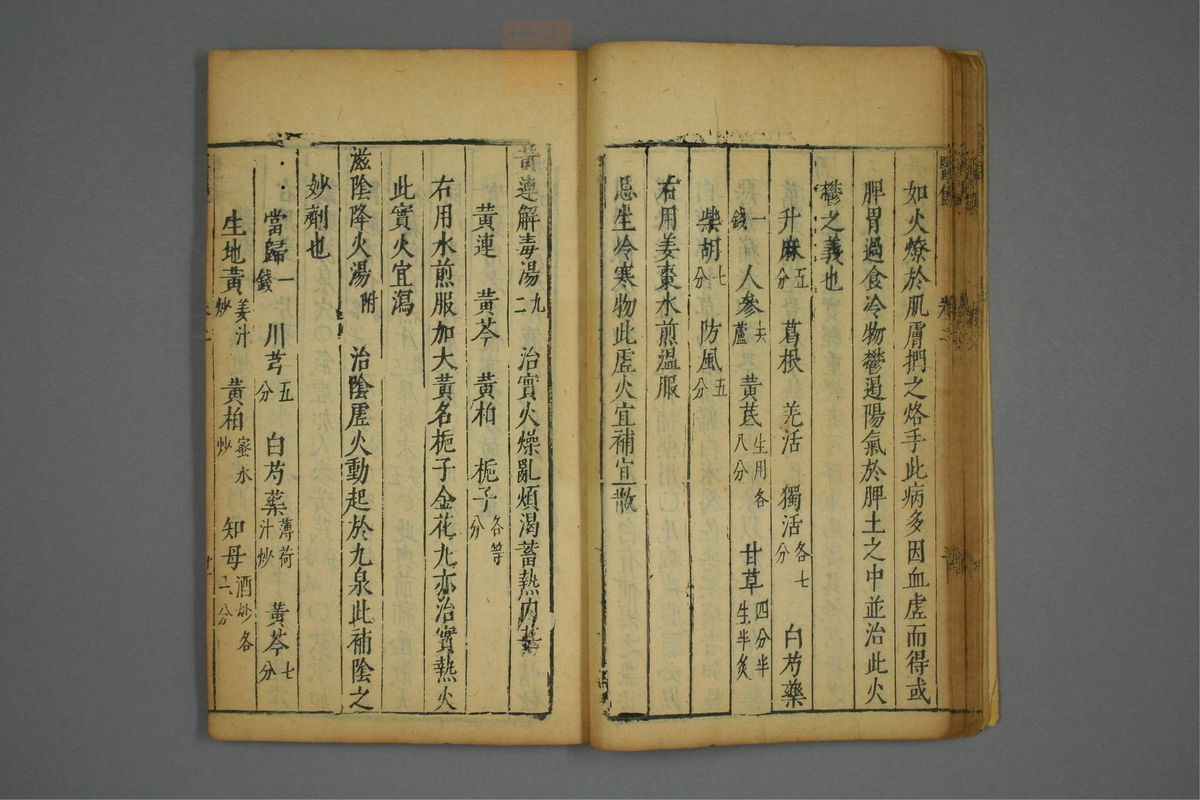 如火燎於肌膚捫之烙手此病多因血虛而得或
脾胃過食冷物鬱遏陽氣於脾土之中並治此火
鬱之義也
升麻五 葛根 羌活 獨活各七分 白芍藥
一錢 人參去蘆 黃芪生用各八分 甘草四分半生半炙
柴胡七分 防風五分
右用姜棗水煎溫服
忌生冷寒物此虛火宜補宜散
黃連解毒湯九二 治實火燥亂煩渴蓄熱內甚
黃連 黃芩 黃柏 梔子各等分
右用水煎服加大黃名梔子金花丸亦治實熱火
此實火宜瀉
滋陰降火湯附 治陰虛火動起於九泉此補陰之
妙劑也
當歸一錢 川芎五分 白芍藥薄荷汁炒 黃芩七分
生地黃姜汁炒 黃柏蜜水炒 知母酒炒各二分